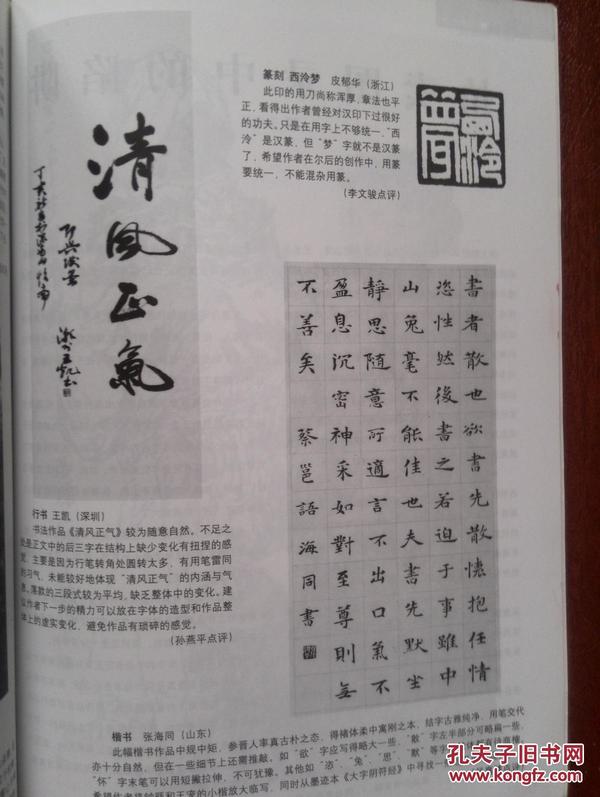 篆刻 西泠梦 皮郁华（浙江）
此印的用刀尚称浑厚，章法也平
正，看得出作者曾经对汉印下过很好
的功夫。只是在用字上不够统一，“西
泠”是汉篆，但“梦”字就不是汉篆
了，希望作者在尔后的创作中，用篆
要统一，不能混杂用篆。
（李文骏点评）
西泠
清风正氣
書者散也欲書先散懷抱任情
恣性然後書之若迫于事雖中
山兔毫不能佳也夫書先默坐
靜思随意所適言不出口氣不
盈息沉密神采如對至尊則無
不善矣 蔡邕語海同書
行书 王凯（深圳）
书法作品《清风正气》较为随意自然。不足之
处是正文中的后三字在结构上缺少变化有扭捏的感
觉，主要是因为行笔转角处圆转太多，有用笔雷同
的习气，未能较好地体现“清风正气”的内涵与气
息。落款的三段式较为平均，缺乏整体中的变化。建
议作者下一步的精力可以放在字体的造型和作品整
体上的虚实变化，避免作品有琐碎的感觉。
（孙燕平点评）
楷书 张海同（山东）
此幅楷书作品中规中矩，参晋人率真古朴之态，得楮体柔中寓刚之本，结字古雅纯净，用笔交代
亦十分自然，但在一些细节上还需推敲。如“欲”字应写得略大一些，“散”字左半部分可略扁一些，
“怀”字末笔可以用短撇拉伸，不可犹豫。其他如“恣”、“兔”、“思”、“默”等字
希望作者将钟繇和王宠的小楷放大临写，同时从墨迹本《大字阴符经》中寻找一
孔夫子旧书网
www.kongfz.com